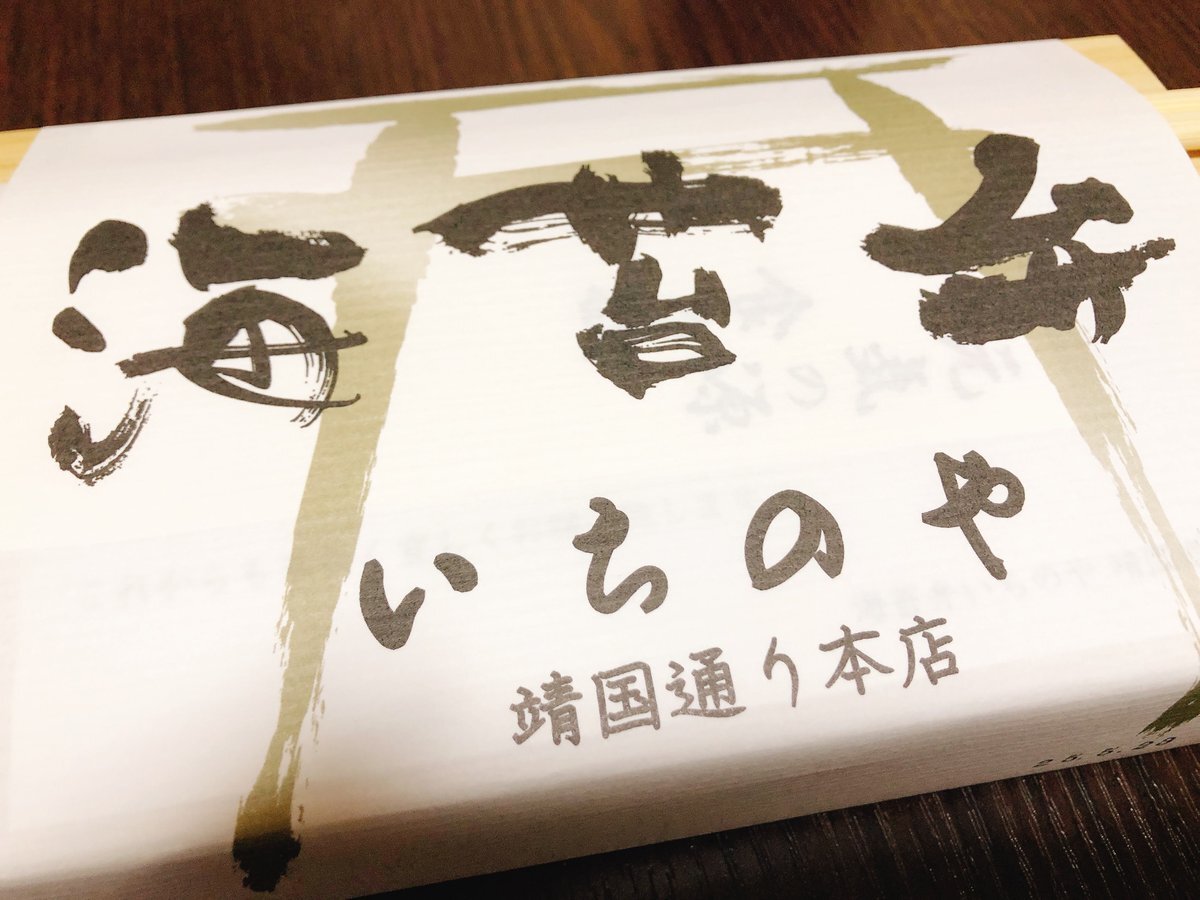 海苔弁
いちのや
靖国通り本店
25.5.23